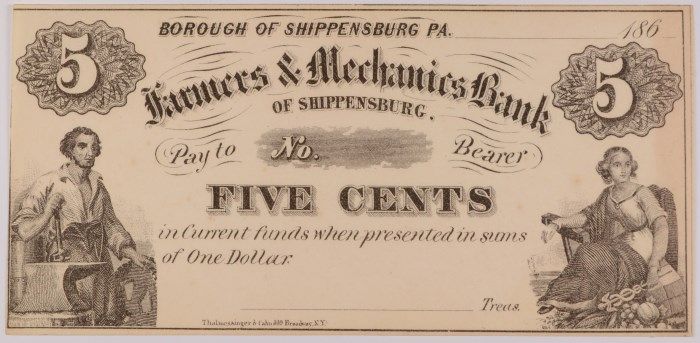 BOROUGH OF SHIPPENSBURG PA. 186
5 5
Farmers & Mechanics Bank
OF SHIPPENSBURG.
Pay to No. Bearer
FIVE CENTS
in Current funds when presented in sums
of One Dollar.
Treas.
Thalmessinger & Cahn 389 Broadway, N.Y.